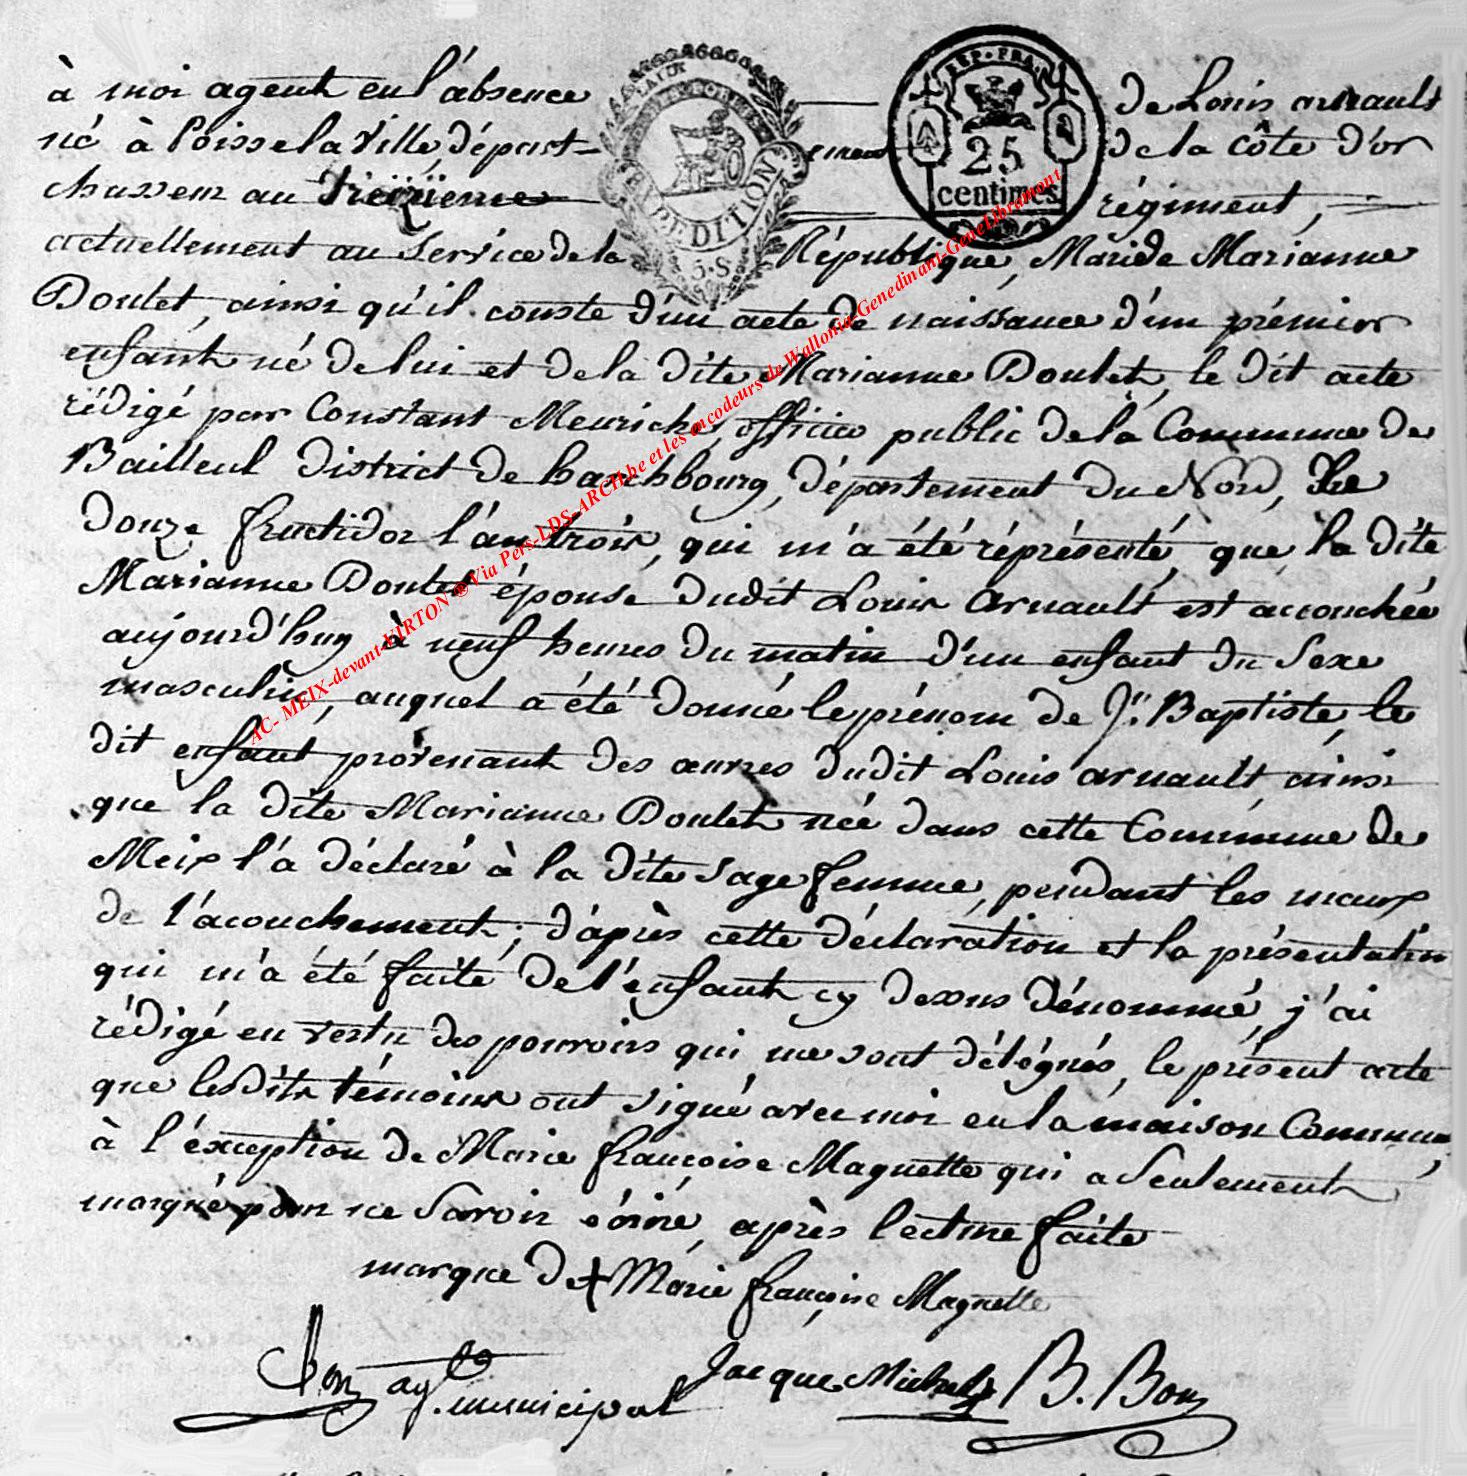 à moi agent en l'absence de Louis arnault
né à Poisselaville, départ=ement de la côte d'or
chasseur au régiment,
actuellement au service de la République, Mari de Marianne
Doulet, ainsi qu'il conste d'un acte de naissance d'un prémier
enfant né de lui et de la dite Marianne Doulet, le dit acte
rédigé par Constant Meuriche, officier public de la Commune de
Bailleul district de hazebbourg, département du Nord, Le
douze fructidor l'an trois, qui m'a été réprésenté, que la dite
Marianne Doulet épouse dudit Louis arnault est accouchée
aujourd'huy à neuf heures du matin d'un enfant du sexe
masculin, auquel a été donné le prénom de Jn Baptiste, le
dit enfant provenant des œuvres dudit Louis arnault, ainsi
que la dite Marianne Doulet née dans cette Commune de
Meix l'a déclaré à la dite sage femme, pendant les maux
de l'acouchement; d'après cette déclaration et la présentation
qui m'a été faite de l'enfant cy dessus dénommé, j'ai
rédigé en vertu des pouvoirs qui me sont délégués, le présent acte
que lesdits témoins ont signé avec moi en la maison Commune,
à l'éxception de Marie françoise Magnette qui a seulement
marqué pour ne savoir écrire, après lecture faite
marque de + Marie françoise Magnette
Bon agt municipal Jacque Michel B. Bon
REP. FRA.
25
centimes
EXPEDITION
5. S
AC- MEIX-devant-VIRTON ® Via Pers-LDS-ARCH.be et les encodeurs de Wallonia-Genedinant-GeneLibramont